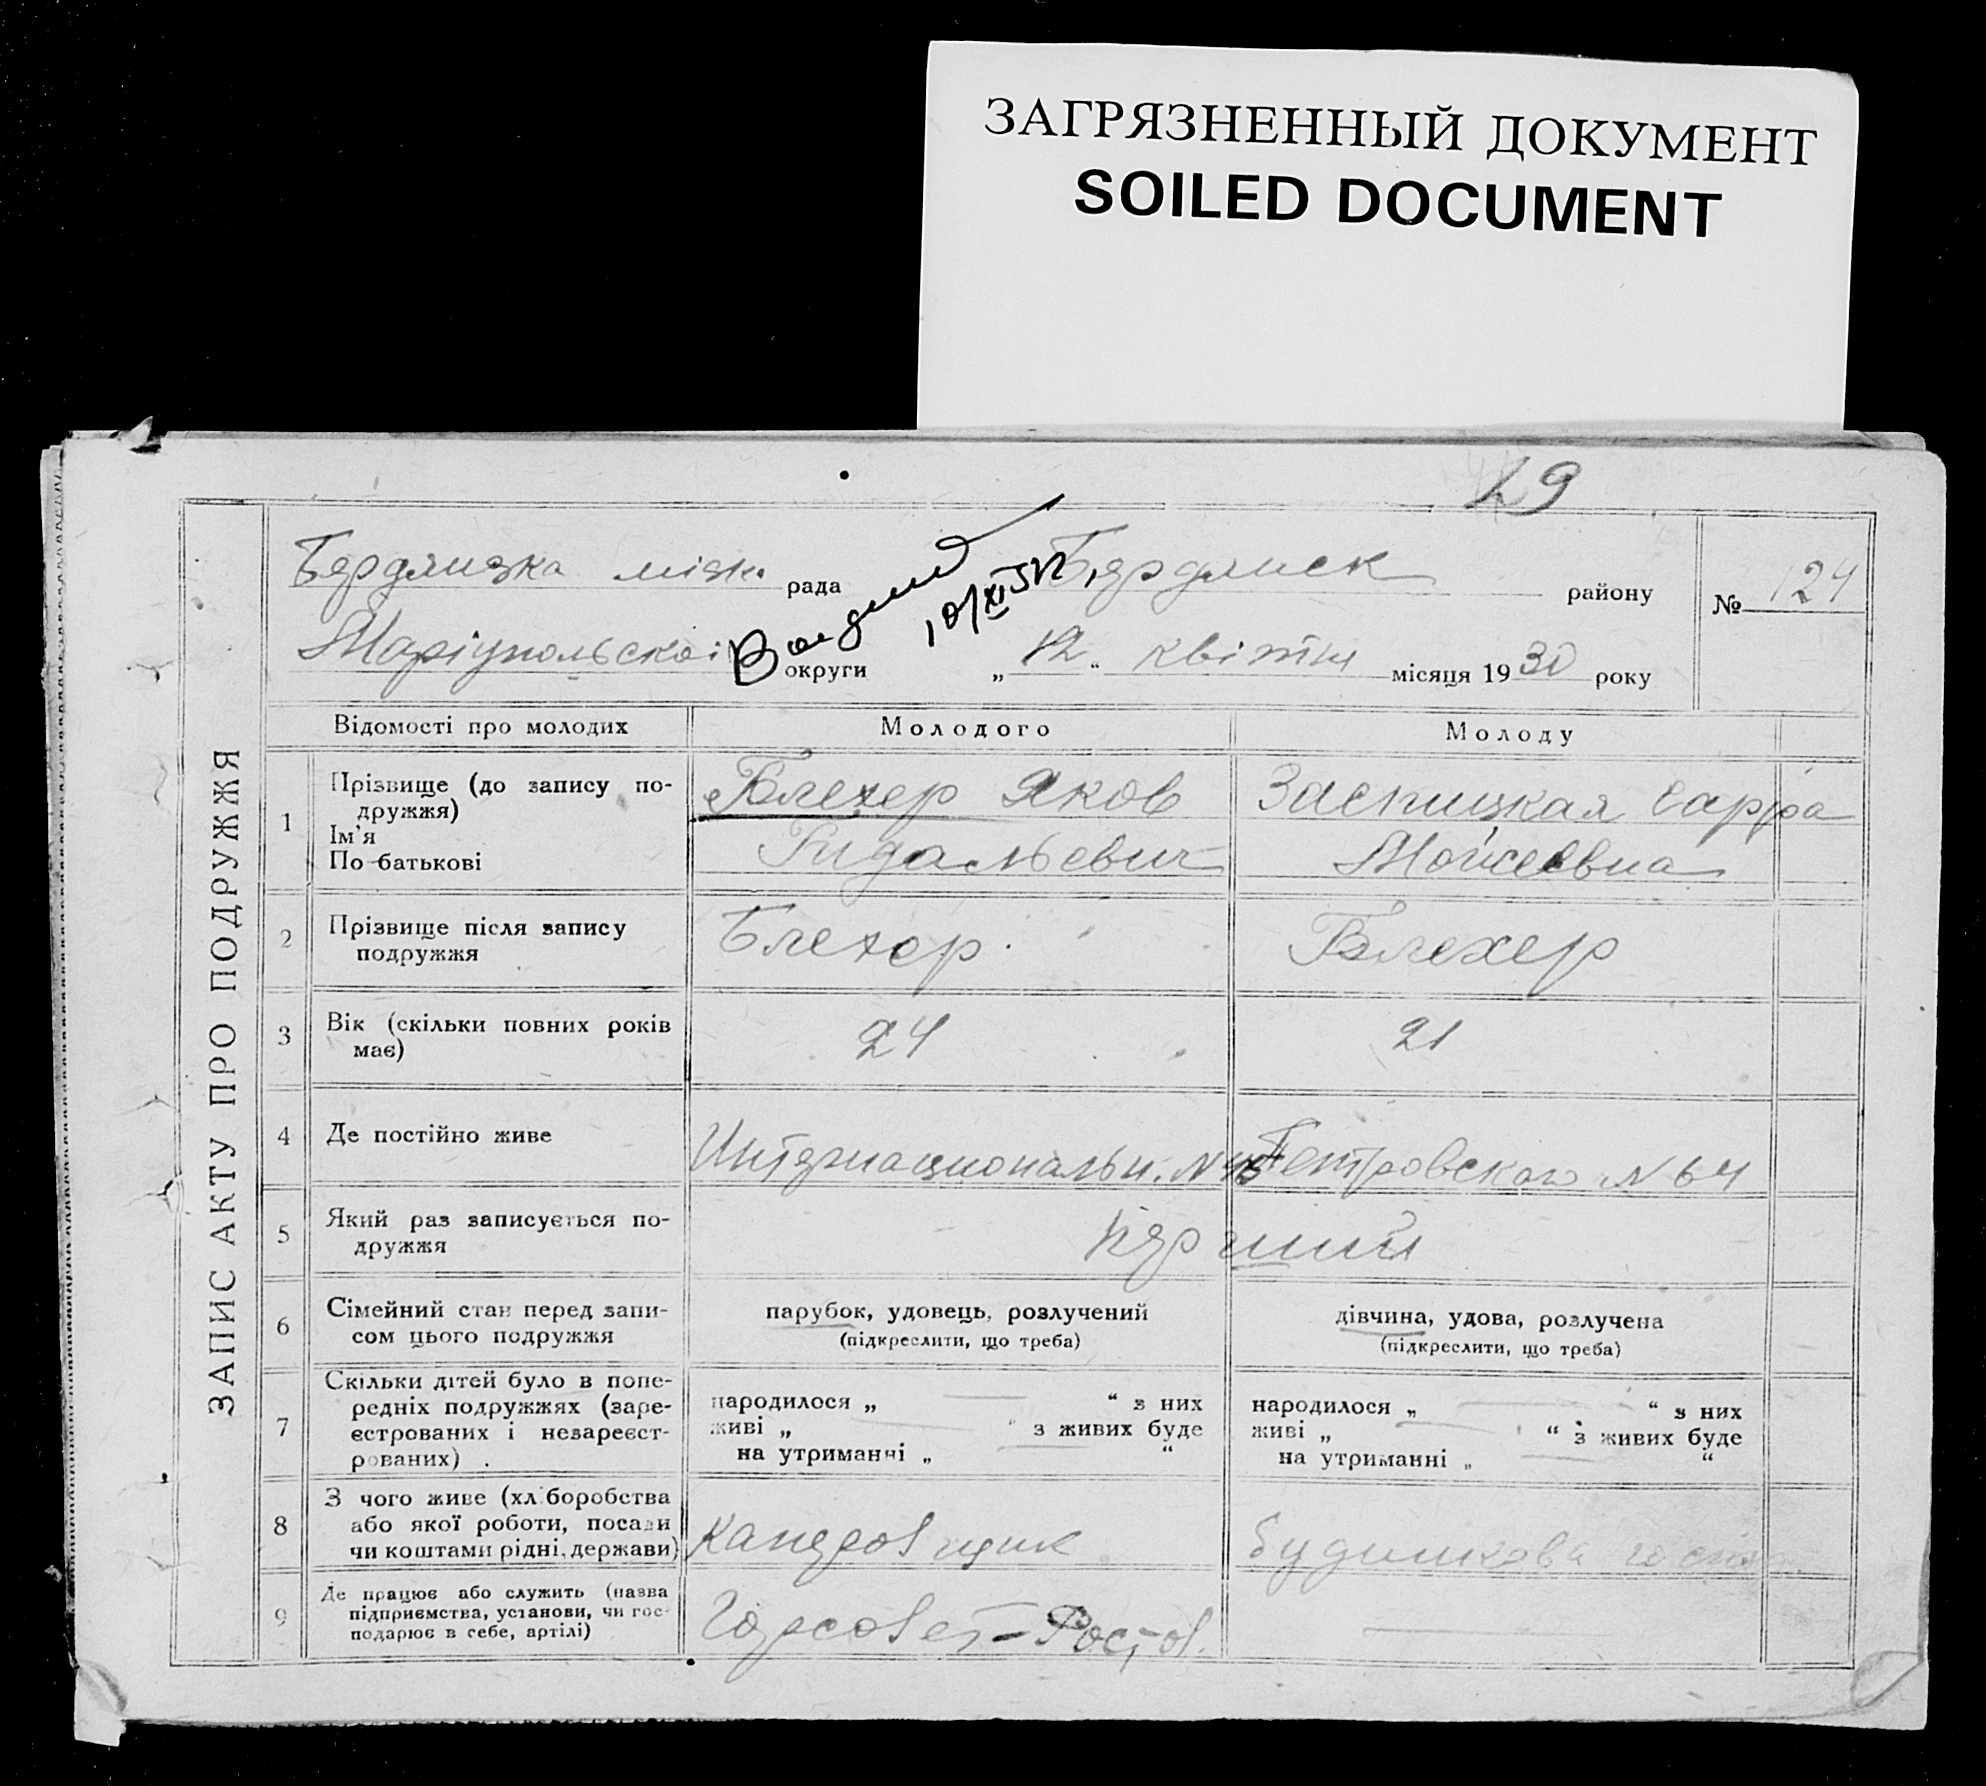 ЗАГРЯЗНЕННЫЙ ДОКУМЕНТ
SOILED DOCUMENT
49
ЗАПИС АКТУ ПРО ПОДРУЖЖЯ
Бердянзка міськ. рада Бердянск району № 124
Маріупольскоі округи „12“ квітня місяця 1930 року
10/XI
Відомості про молодих Молодого Молоду
1 Прізвище (до запису по-
дружжя)
Ім'я
По-батькові
Блехер Яков
Заспицкая Сарра
Мойсеевна
2 Прізвище після запису
подружжя
Блехер. Блехер
3 Вік (скільки повних років
має)
24 21
4 Де постійно живе
Интернациональн. N Петровского N 64
5 Який раз записується по-
дружжя
перший
6 Сімейний стан перед запи-
сом цього подружжя
парубок, удовець, розлучений
(підкреслити, що треба)
дівчина, удова, розлучена
(підкреслити, що треба)
7 Скільки дітей було в попе-
редніх подружжях (заре-
єстрованих і незареєст-
рованих) .
народилося „ — “ з них
живі „ — “ з живих буде
на утриманні „ — “
народилося „ — “ з них
живі „ — “ з живих буде
на утриманні „ — “
8 З чого живе (хліборобства
або якої роботи, посади
чи коштами рідні, держави)
9 Де працює або служить (назва
підприємства, установи, чи гос-
подарює в себе, артілі)
Горсовет-Ростов. —